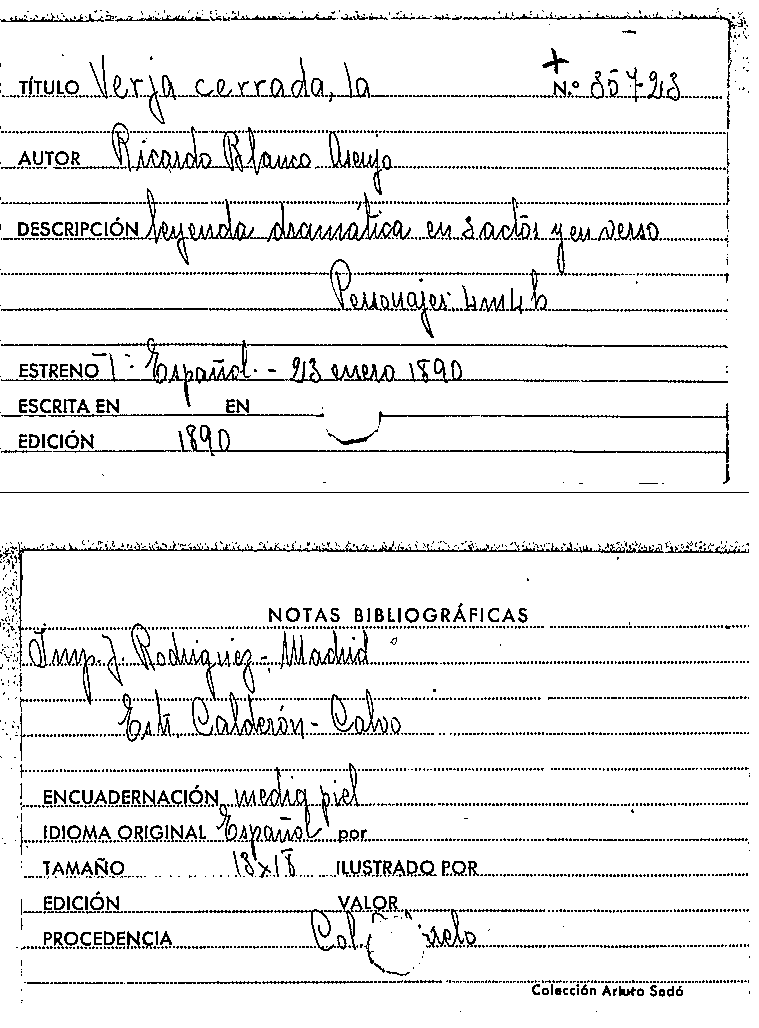 TÍTULO Verja cerrada, la N.º 35723
AUTOR Ricardo Blanco Asenjo
DESCRIPCIÓN leyenda dramática en 3 actos y en verso
Personajes 4m 4h
ESTRENO T. Español. - 23 enero 1890
ESCRITA EN EN
EDICIÓN 1890
NOTAS BIBLIOGRÁFICAS
Imp. J. Rodriguez - Madrid
Estr. Calderón - Calvo
ENCUADERNACIÓN media piel
IDIOMA ORIGINAL Español por
TAMAÑO 13x18 ILUSTRADO POR
EDICIÓN VALOR
PROCEDENCIA Col.
Colección Arturo Sedó